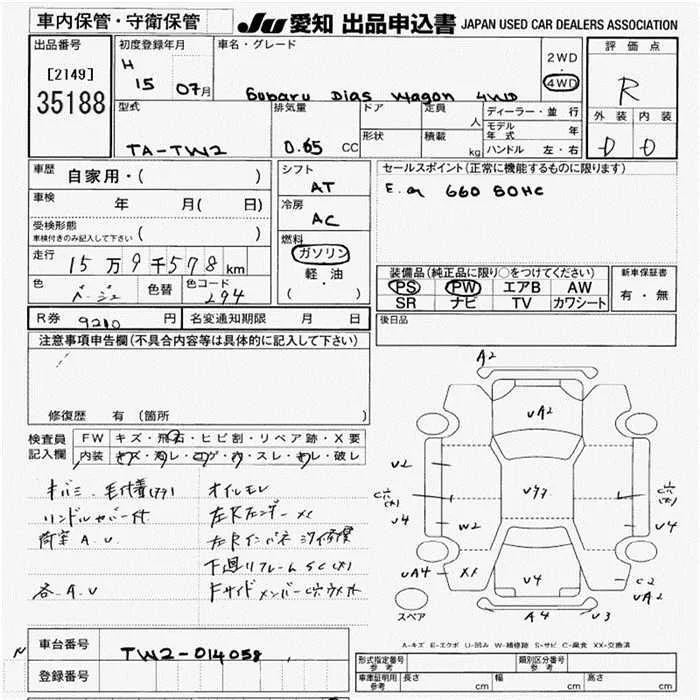 車内保管・守衛保管
JU 愛知 出品申込書 JAPAN USED CAR DEALERS ASSOCIATION
出品番号
[2149]
35188
初度登録年月
H 15 07月
車名・グレード
Subaru Dias Wagon 4WD
2WD
・
4WD
評価点
R
外装 内装
D D
型式
TA-TW2
排気量
0.65 CC
ドア
定員
人
形状
積載
kg
ディーラー・並行
モデル年式 年
ハンドル 左・右
車歴
自家用・( )
車検
年 月( 日)
受検形態
車検付きのみ記入して下さい
( )
走行
15万9千578km
色
ベージュ
色替
色コード
294
シフト
AT
冷房
AC
燃料
ガソリン
軽・油
( )
セールスポイント(正常に機能するものに限ります)
660 SOHC
装備品(純正品に限り○をつけてください)
PS PW エアB AW
SR ナビ TV カワシート
新車保証書
有・無
R券 9210 円
名変通知期限 月 日
後日品
注意事項申告欄(不具合内容等は具体的に記入して下さい)
修復歴 有 (箇所 )
検査員記入欄
FW キズ・飛石・ヒビ割・リペア跡・X要
内装 キズ・汚レ・コゲ・穴・スレ・切レ・破レ
オイルモレ
荷室 A.U
各.A.U
A2
UA2
U2
U4
W2
U4
UA4
XX
U4
C2
UA2
A4
U3
スペア
A-キズ E-エクボ U-凹み W-補修跡 S-サビ C-腐食 XX-交換済
車台番号
TW2-014058
登録番号
形式指定番号 参考
類別区分番号 参考
車庫証明用 参考
長さ cm
幅 cm
高さ cm